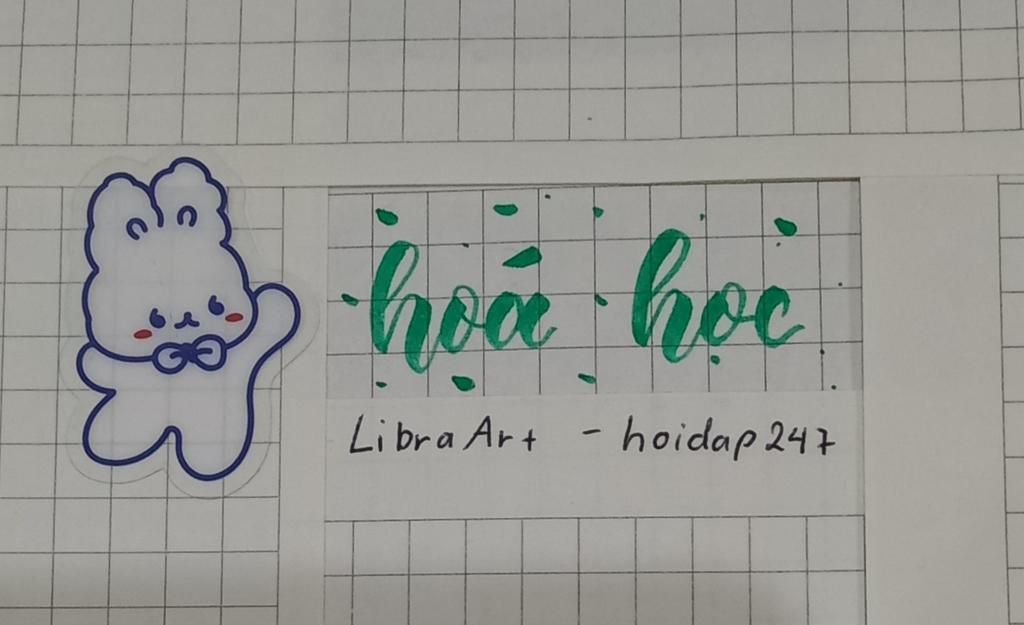 hoá học
LibraArt - hoidap247